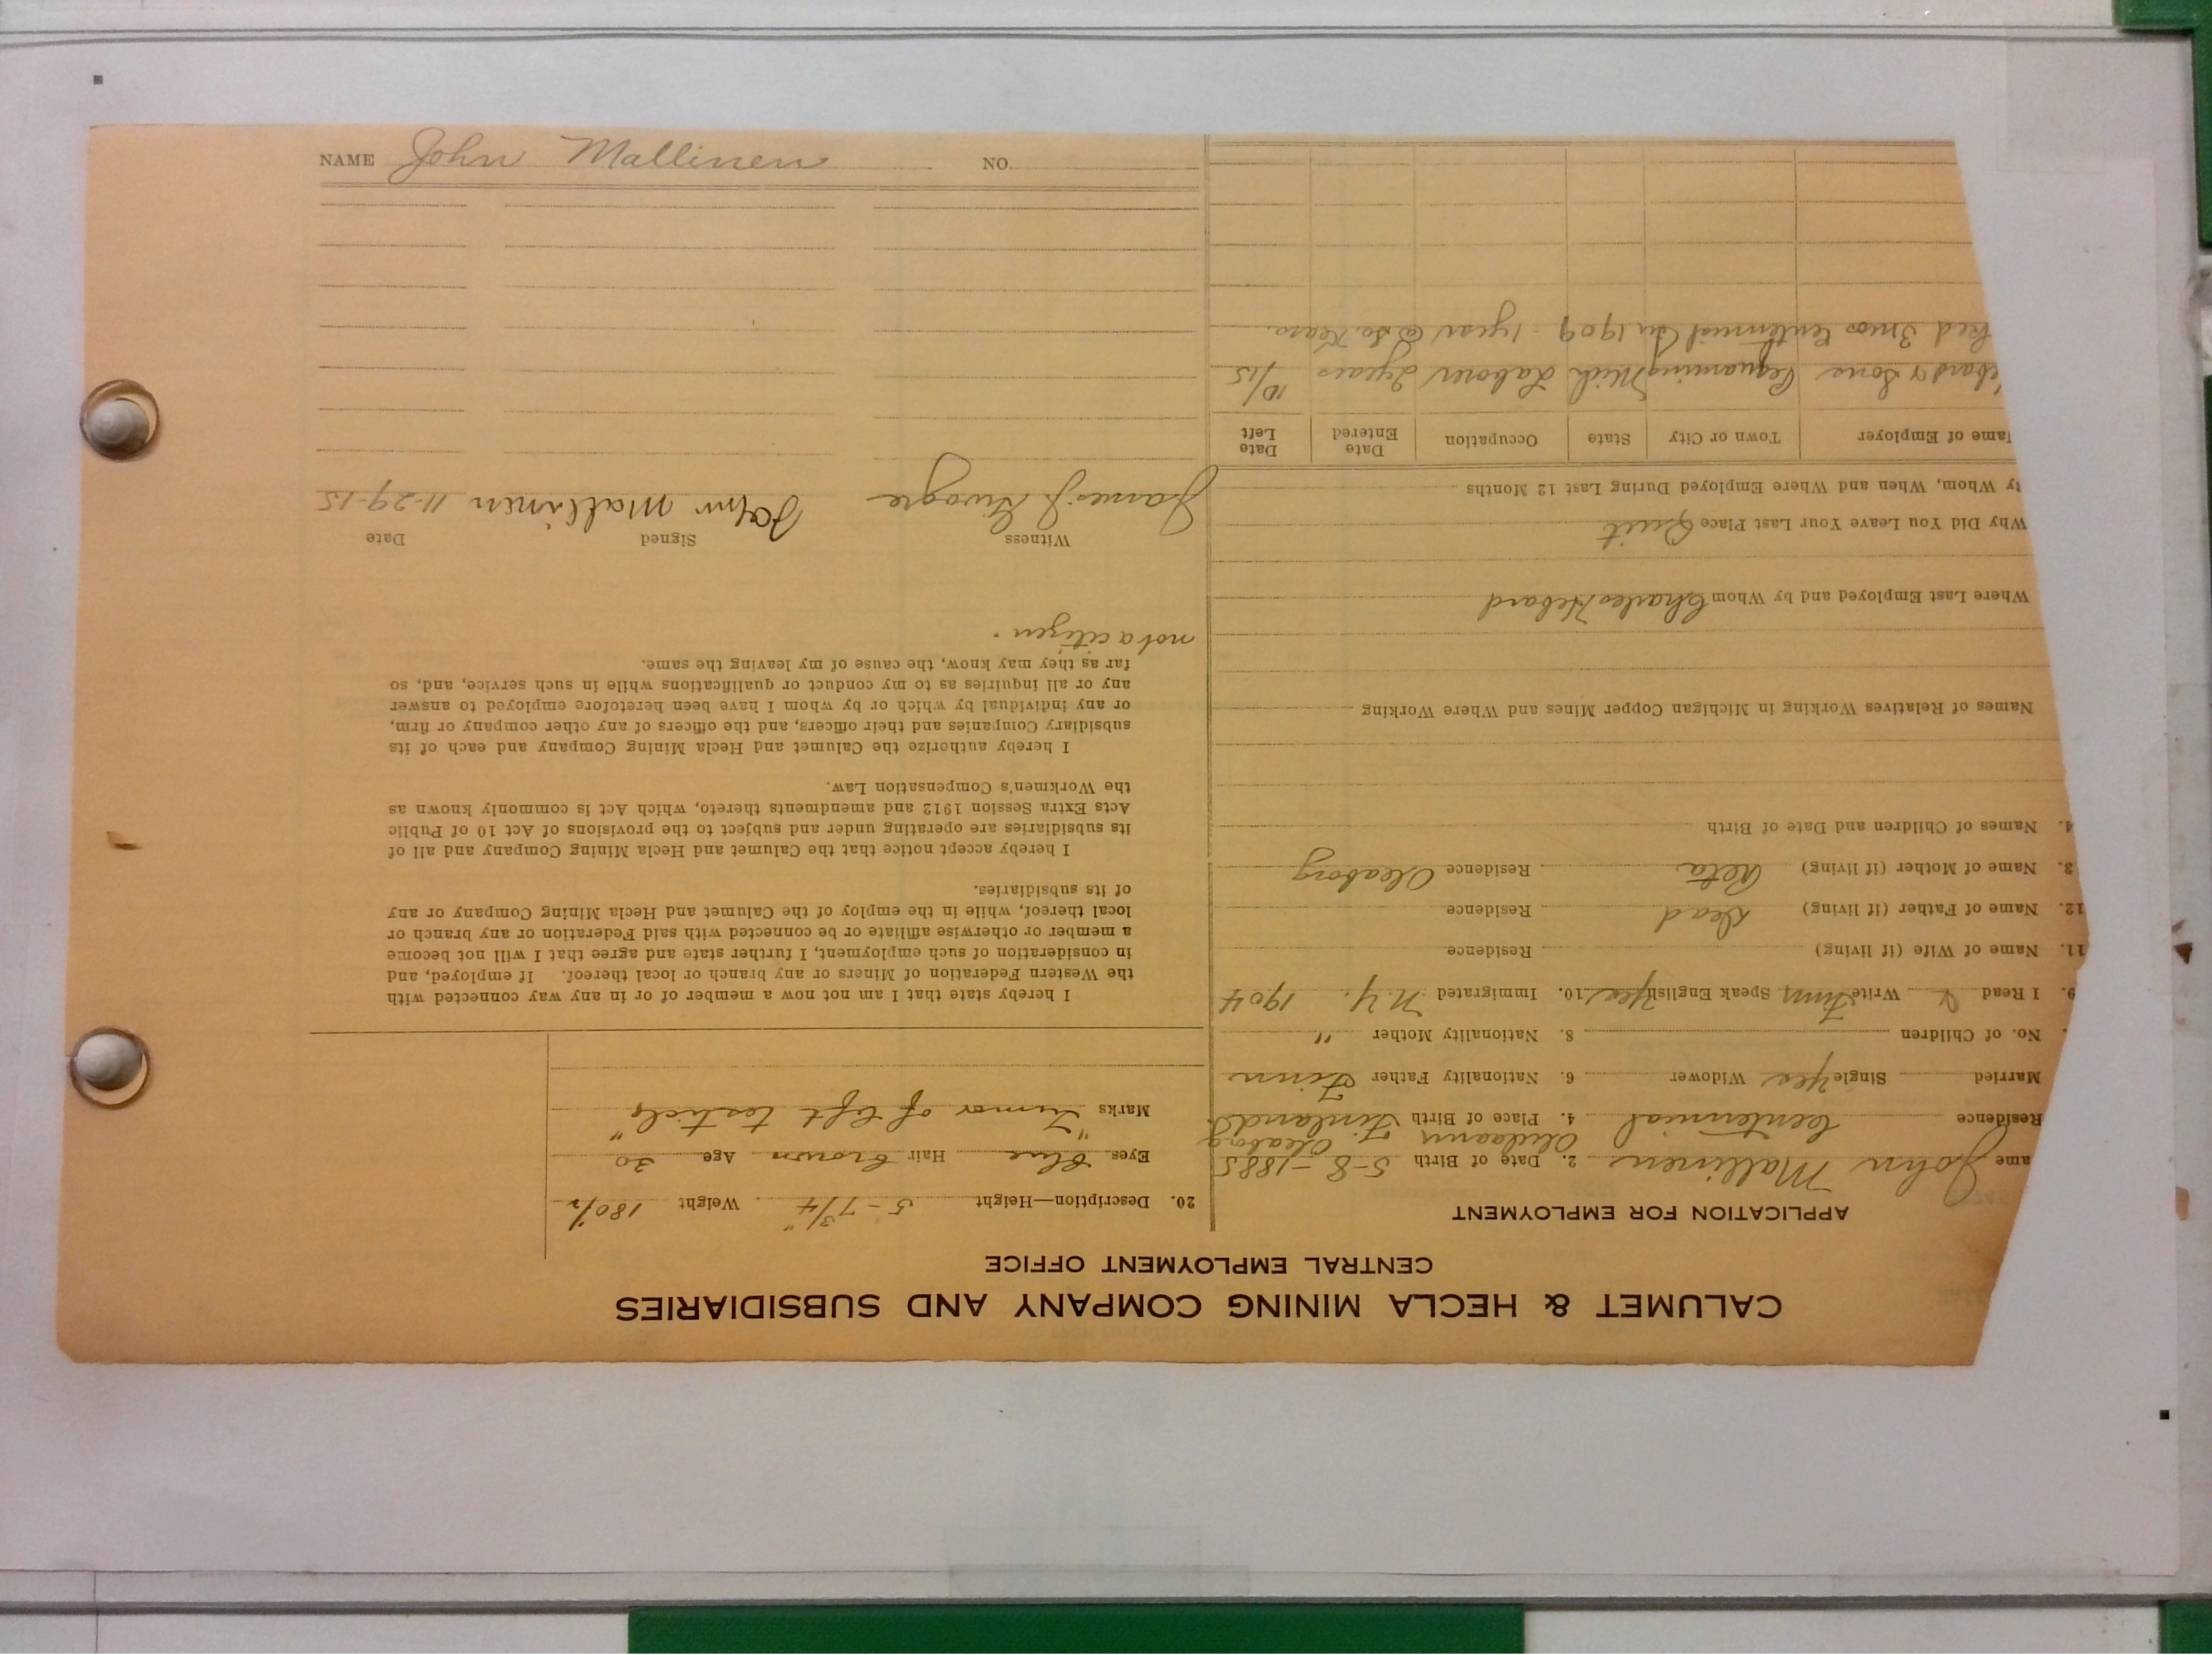 CALUMET & HECLA MINING COMPANY AND SUBSIDIARIES
CENTRAL EMPLOYMENT OFFICE
APPLICATION FOR EMPLOYMENT
ame John Mallinen 2. Date of Birth 5-8-1885
Residence Centennial 4. Place of Birth Finland
Oleaborg
Married Single Yes Widower 6. Nationality Father Finn
No. of Children 8. Nationality Mother "
9. I Read & Write Finn Speak English Yes 10. Immigrated N.Y. 1904
11. Name of Wife (if living) Residence
12. Name of Father (if living) Dead Residence
3. Name of Mother (if living) Reta Residence Oleaborg
4. Names of Children and Date of Birth
Names of Relatives Working in Michigan Copper Mines and Where Working
Where Last Employed and by Whom Charles Hebard
Why Did You Leave Your Last Place Quit
By Whom, When and Where Employed During Last 12 Months
ame of Employer Town or City State Occupation Date Entered Date Left
ebard & Sons Pequaming Mich Laborer 2 years 10/15
ked 3 mos Centennial in 1909 - 1 year @ So. Kears.
20. Description—Height 5-7 3/4" Weight 180 1/2
Eyes Blue Hair Brown Age 30
Marks "Tumor of left testicle"
I hereby state that I am not now a member of or in any way connected with
the Western Federation of Miners or any branch or local thereof. If employed, and
in consideration of such employment, I further state and agree that I will not become
a member or otherwise affiliate or be connected with said Federation or any branch or
local thereof, while in the employ of the Calumet and Hecla Mining Company or any
of its subsidiaries.
I hereby accept notice that the Calumet and Hecla Mining Company and all of
its subsidiaries are operating under and subject to the provisions of Act 10 of Public
Acts Extra Session 1912 and amendments thereto, which Act is commonly known as
the Workmen's Compensation Law.
I hereby authorize the Calumet and Hecla Mining Company and each of its
subsidiary Companies and their officers, and the officers of any other company or firm,
or any individual by which or by whom I have been heretofore employed to answer
any or all inquiries as to my conduct or qualifications while in such service, and, so
far as they may know, the cause of my leaving the same.
not a citizen.
Witness Signed Date
James J. John Mallinen 11-29-15
NAME John Mallinen NO.